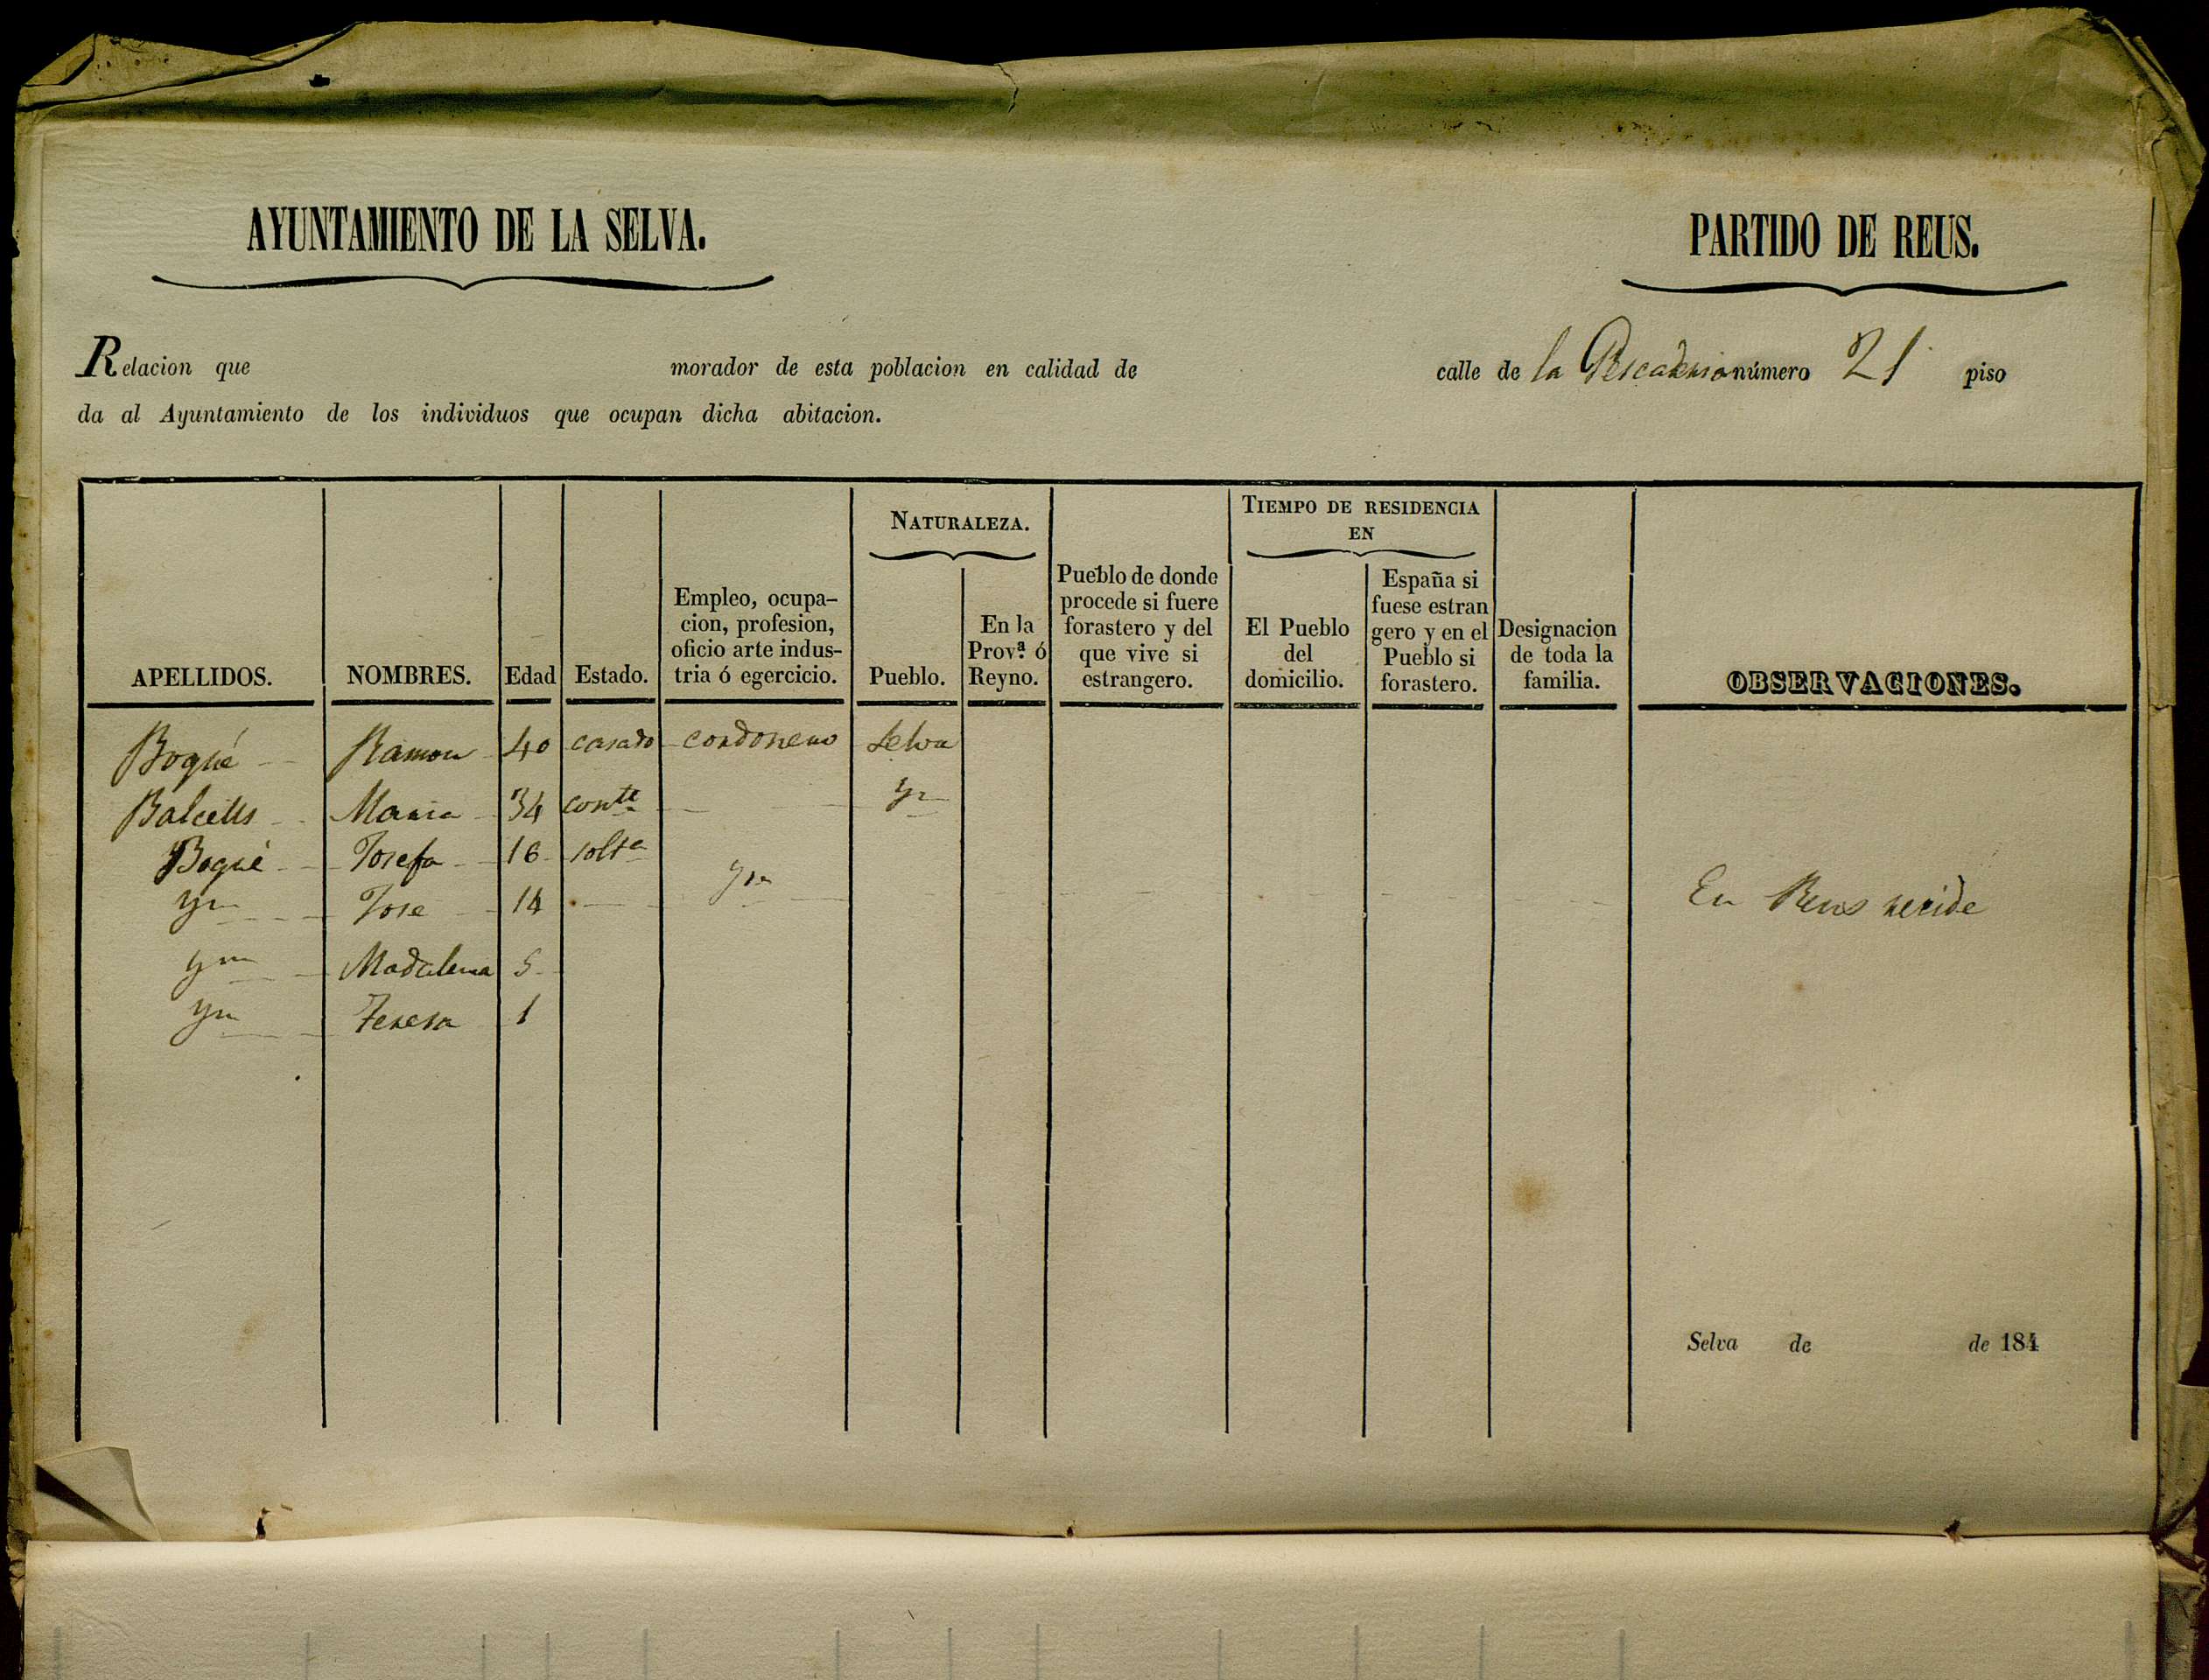 AYUNTAMIENTO DE LA SELVA.
PARTIDO DE REUS.
Relacion que morador de esta poblacion en calidad de calle de la Pescaderia número 21 piso
da al Ayuntamiento de los individuos que ocupan dicha abitacion.
APELLIDOS.
NOMBRES.
Edad
Estado.
Empleo, ocupa-
cion, profesion,
oficio arte indus-
tria ó egercicio.
NATURALEZA.
Pueblo.
En la
Prov.ª ó
Reyno.
Pueblo de donde
procede si fuere
forastero y del
que vive si
estrangero.
TIEMPO DE RESIDENCIA
EN
El Pueblo
del
domicilio.
España si
fuese estran
gero y en el
Pueblo si
forastero.
Designacion
de toda la
familia.
OBSERVACIONES.
Bogué Ramon 40 casado cordonero Selva
Balcells Maria 34 conte Yn
Bogué Josefa 16 solta
Yn Jose 14 Yn En Reus recide
Yn Madalena 5
Yn Teresa 1
Selva de de 184